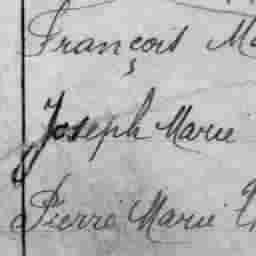 François Ma
Joseph Marie
Pierre Marie